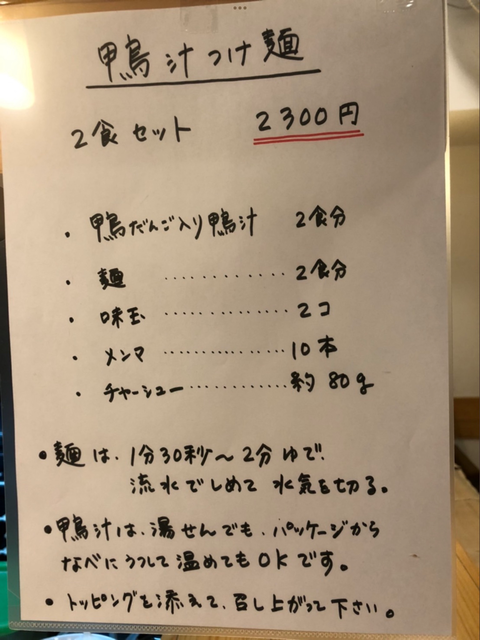 鴨汁つけ麺
2食セット 2300円
・鴨だんご入り鴨汁 2食分
・麺 ‥‥‥‥‥‥ 2食分
・味玉 ‥‥‥‥‥‥ 2コ
・メンマ ‥‥‥‥‥‥ 10本
・チャーシュー ‥‥‥‥‥ 約80g
・麺は、1分30秒〜2分ゆで、
流水でしめて水気を切る。
・鴨汁は、湯せんでも、パッケージから
なべにうつして温めてもOKです。
・トッピングを添えて、召し上がって下さい。